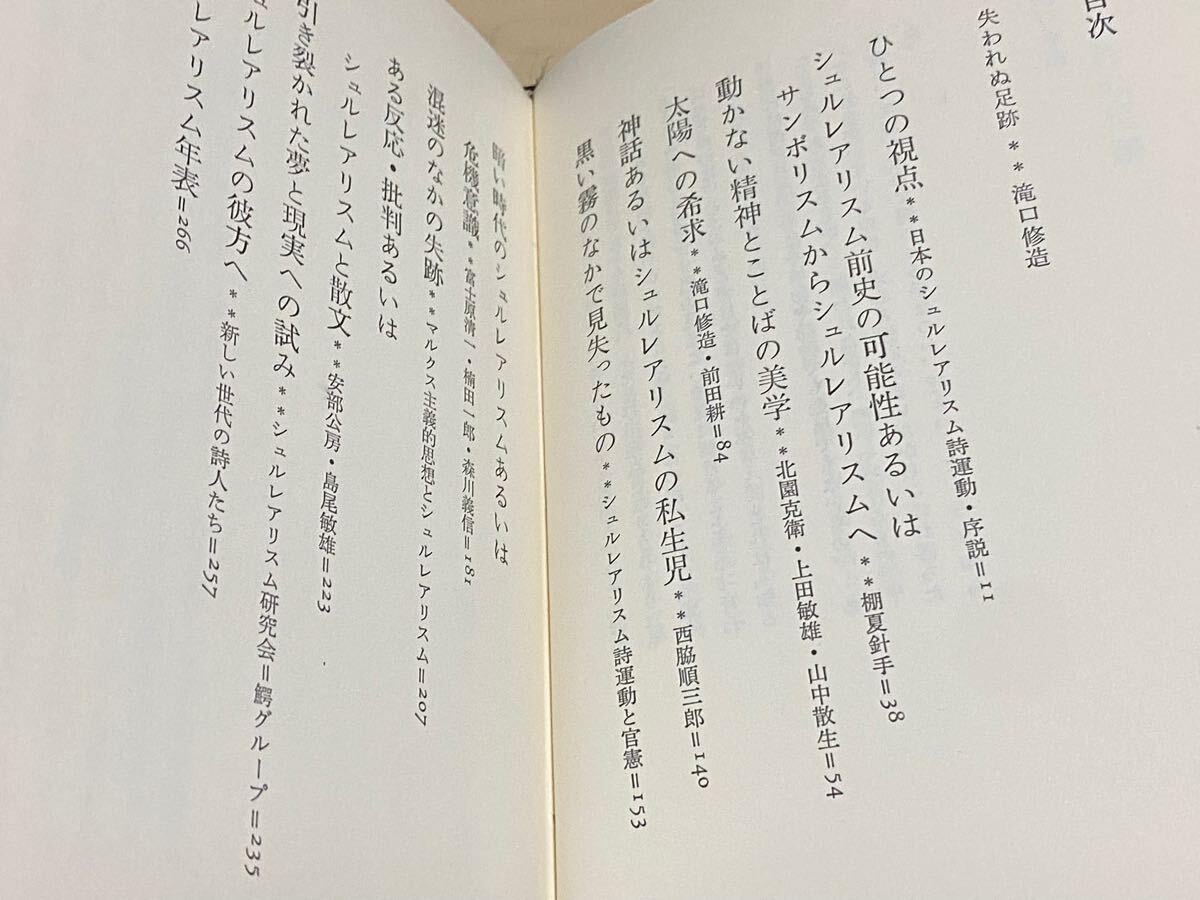 目次
失われぬ足跡**滝口修造
ひとつの視点**日本のシュルレアリスム詩運動・序説=11
シュルレアリスム前史の可能性あるいは
サンボリスムからシュルレアリスムへ**棚夏針手=38
動かない精神とことばの美学**北園克衛・上田敏雄・山中散生=54
太陽への希求**滝口修造・前田耕=84
神話あるいはシュルレアリスムの私生児**西脇順三郎=140
黒い霧のなかで見失ったもの**シュルレアリスム詩運動と官憲=153
暗い時代のシュルレアリスムあるいは
危機意識**富士原清一・楠田一郎・森川義信=181
混迷のなかの失跡**マルクス主義的思想とシュルレアリスム=207
ある反応・批判あるいは
シュルレアリスムと散文**安部公房・島尾敏雄=223
引き裂かれた夢と現実への試み**シュルレアリスム研究会=鰐グループ=235
ュルレアリスムの彼方へ**新しい世代の詩人たち=257
レアリスム年表=266